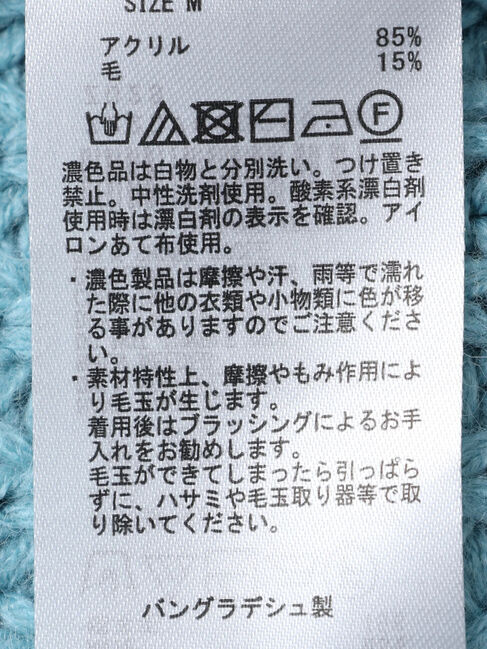 SIZE M
アクリル 85%
毛 15%
F
濃色品は白物と分別洗い。つけ置き
禁止。中性洗剤使用。酸素系漂白剤
使用時は漂白剤の表示を確認。アイ
ロンあて布使用。
・濃色製品は摩擦や汗、雨等で濡れ
た際に他の衣類や小物類に色が移
る事がありますのでご注意くださ
い。
・素材特性上、摩擦やもみ作用によ
り毛玉が生じます。
着用後はブラッシングによるお手
入れをお勧めします。
毛玉ができてしまったら引っぱら
ずに、ハサミや毛玉取り器等で取
り除いてください。
バングラデシュ製